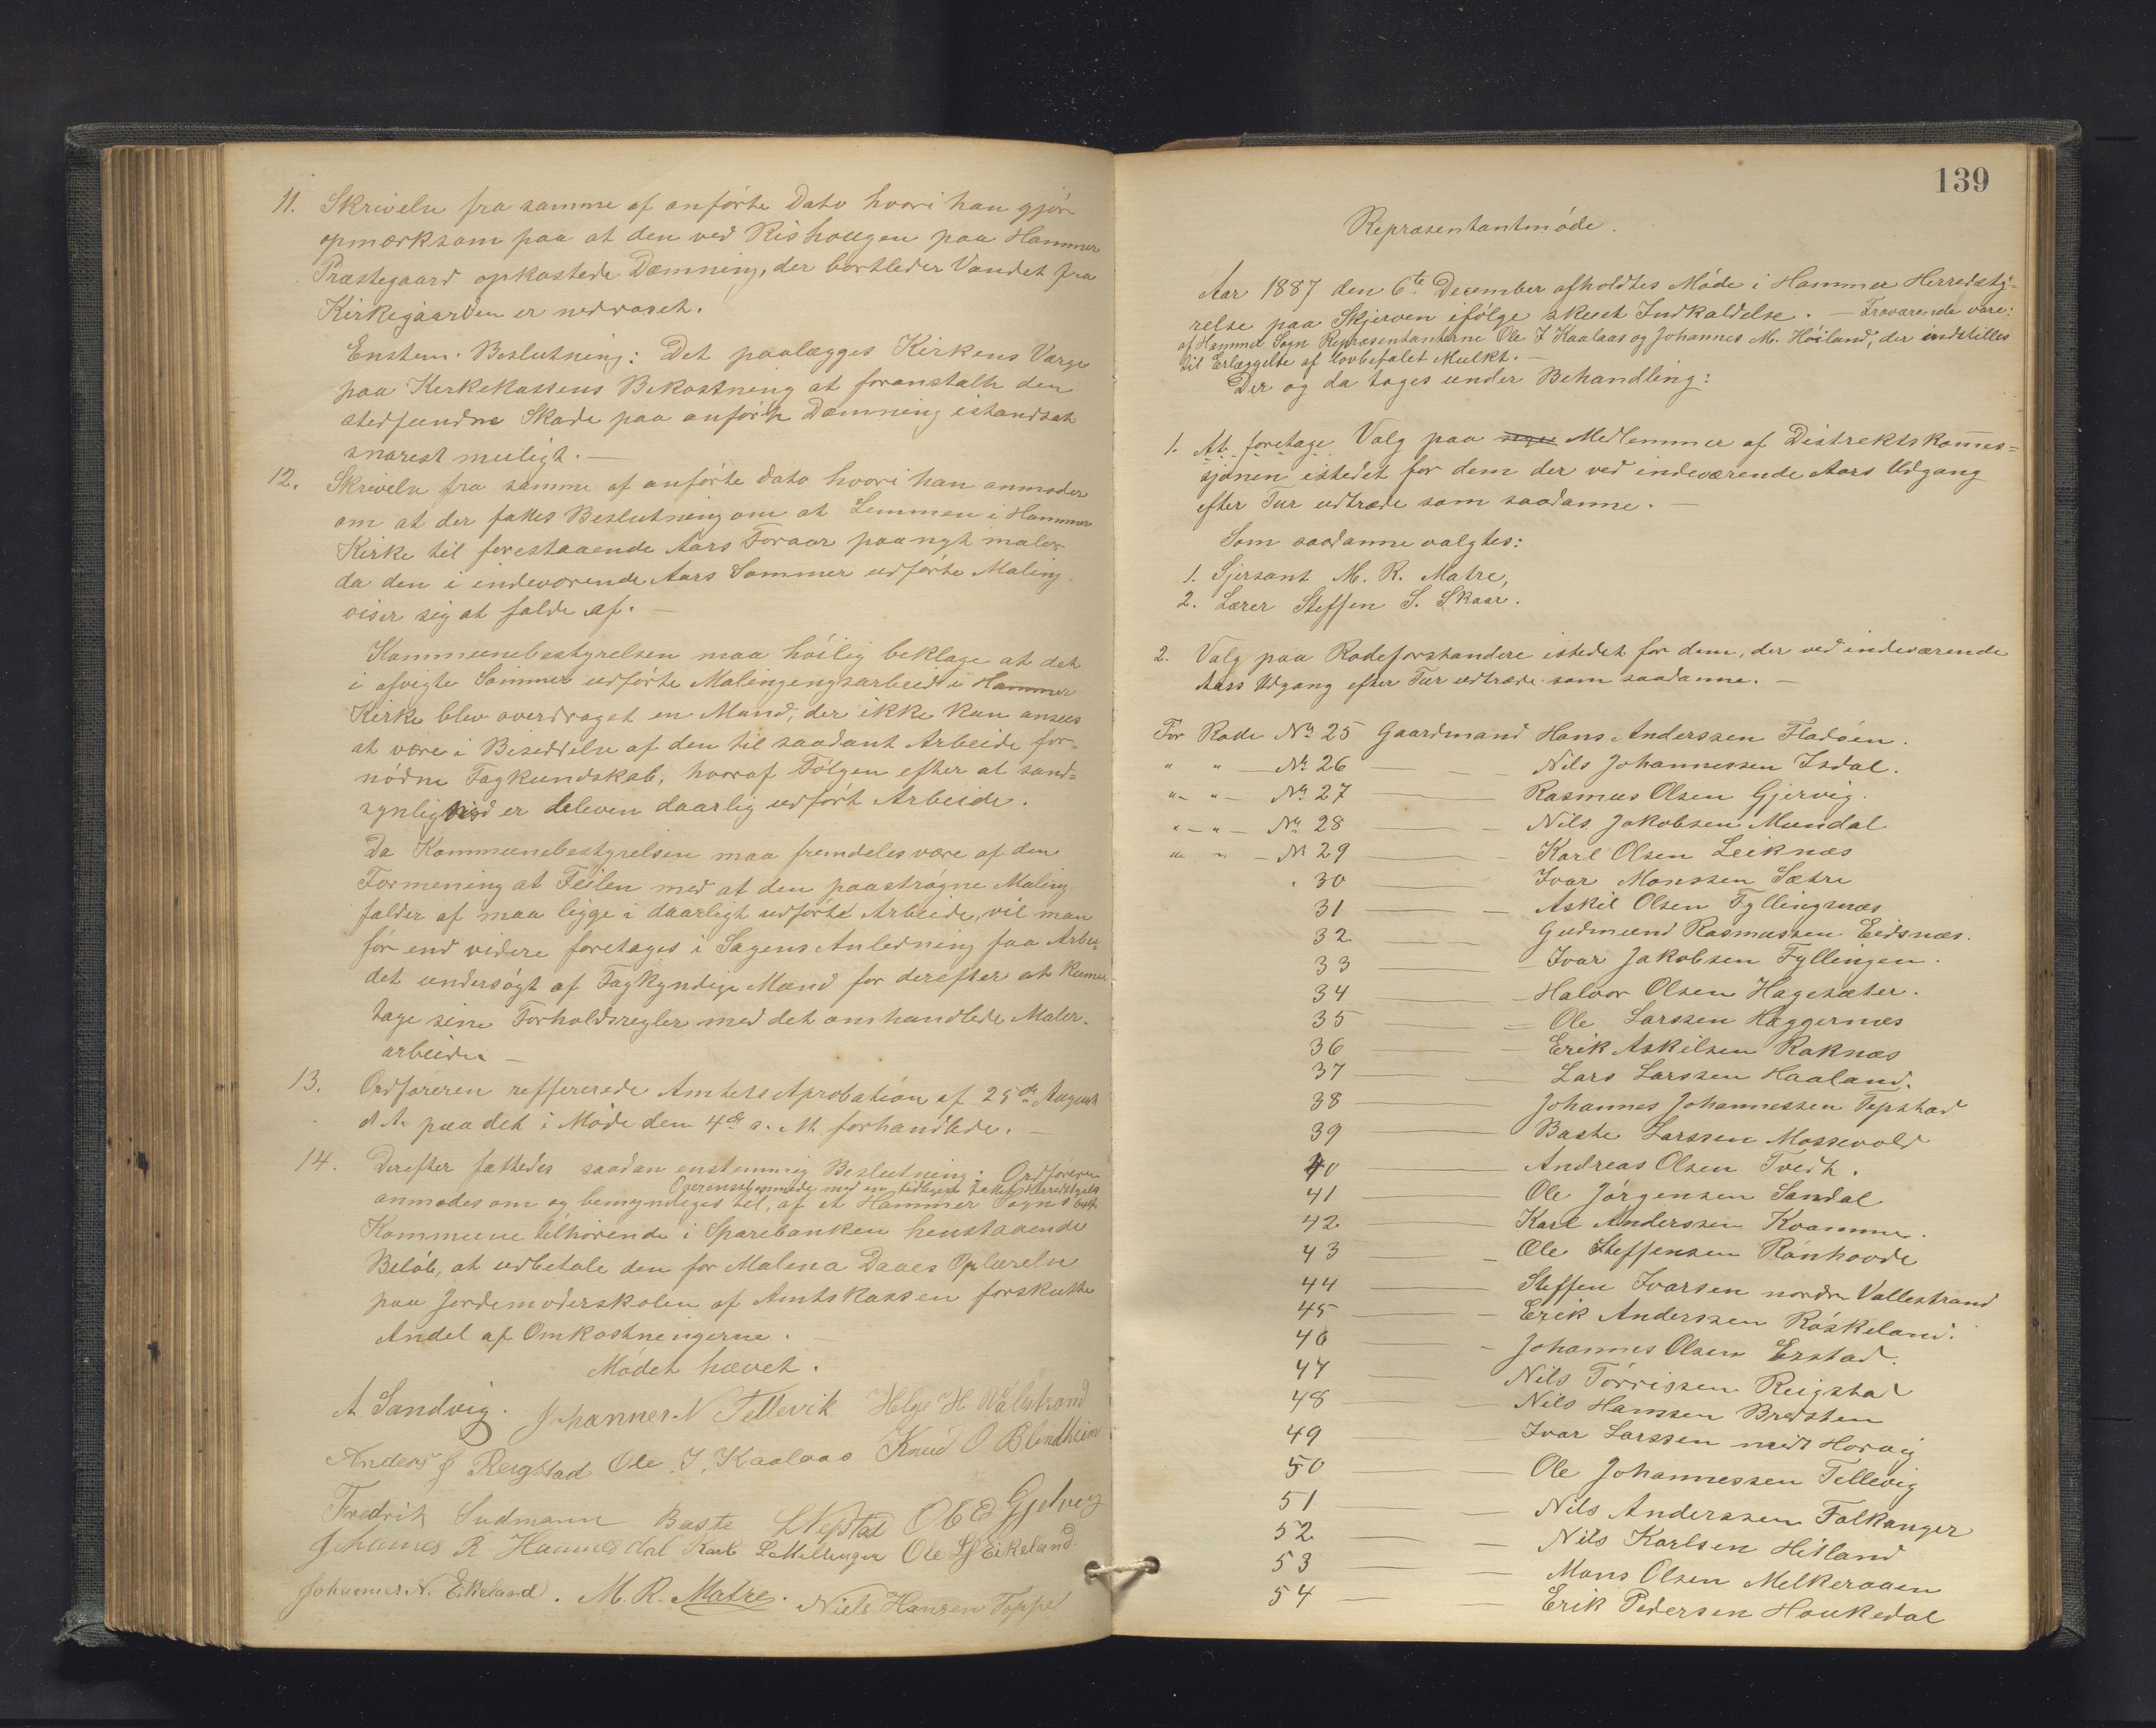 11. Skrivelse fra samme af anførte Dato hvori han gjør
opmærksom paa at den ved Rishougen paa Hammer
Præstegaard opkastede Dæmning, der bortleder Vandet fra
Kirkegaarden er nedraset.
Enstem. Beslutning: Det paalægges Kirkens Værge
paa Kirkekassens Bekostning at foranstalte den
stedfundne Skade paa anførte Dæmning istandsat
snarest muligt. —
12. Skrivelse fra samme af anførte Dato hvori han anmoder
om at der fattes Beslutning om at Lemmen i Hammer
Kirke til forestaaende Aars Foraar paanyt males
da den i indeværende Aars Sommer udførte Maling
viser sig at falde af. —
Kommunebestyrelsen maa høilig beklage at det
i afvigte Sommer udførte Malingengsarbeid i Hammer
Kirke blev overdraget en Mand, der ikke kan ansees
at være i Besiddelse af den til saadant Arbeide for-
nødne Fagkundskab, hvoraf Følgen efter al sand-
synlighed er bleven daarlig udført Arbeide.
Da Kommunebestyrelsen maa fremdeles være af den
Formening at Feilen med at den paastrøgne Maling
falder af maa ligge i daarligt udførte Arbeide, vil man
før end videre foretages i Sagens Anledning faa Arbei-
det undersøgt af Fagkyndige Mænd for derefter at kunne
tage sine Forholdsregler med det omhandlede Maler-
arbeide. —
13. Ordføreren reffererede Amtets Aprobation af 25de August
d A. paa det i Møde den 4de s. M. forhandlede. —
14. Derefter fattedes saadan enstemmig Beslutning: Ordføreren
Overensstemmende med en tidligere taket Herredstyrels
anmodes om og bemyndiges til, af et Hammer Sogns
Kommune tilhørende i Sparebanken henstaaende
Beløb, at udbetale den for Malena Daaes Oplærelse
paa Jordemoderskolen af Amtskassen forskutte
Andel af Omkostningerne. —
Mødet hævet.
A Sandvig. Johannes N Tellevik Helge H Valestrand
Anders J Reigstad Ole J. Kaalaas Knud O Blindheim
Fredrik Sudmann Baste L Nepstad O E Gjelvig
Johannes R Hannisdal Karl L Mellinger Ole L Eikeland
Johannes N. Eikeland. M. R. Matre. Niels Hansen Toppe
139
Repræsentantmøde.
Aar 1887 den 6te December afholdtes Møde i Hammer Herredsty-
relse paa Skjerven ifølge skeet Indkaldelse. — Fraværende vare:
af Hammer Sogn Repræsentanterne Ole J Kaalaas og Johannes M. Høiland, der indstilles
til Erlæggelse af lovbefalet Mulkt. —
Der og da toges under Behandling:
1. At foretage Valg paa Medlemmer af Distriktskommis-
sjonen istedet for dem der ved indeværende Aars Udgang
efter Tur udtræde som saadanne. —
Som saadanne valgtes:
1. Sjersant M. R. Matre,
2. Lærer Steffen S. Skaar.
2. Valg paa Rodeforstandere istedet for dem, der ved indeværende
Aars Udgang efter Tur udtræde som saadanne. —
For Rode No 25 Gaardmand Hans Anderssen Fladøen.
" " — No 26 — — Nils Johannessen Isdal.
" — " — No 27 — Rasmus Olsen Gjervig.
" — " — No 28 — — Nils Jakobsen Mundal
" " — No 29 — — Karl Olsen Leiknæs
" 30 — Ivar Monssen Sætre
31 — — Askil Olsen Fyllingsnæs
32 — — Gudmund Rasmussen Eidsnæs.
33 — — Ivar Jakobsen Fyllingen.
34 — — Halvor Olsen Hagesæter.
35 — — Ole Larssen Haggernæs
36 — — Erik Askilsen Raknæs
37 — — Lars Larssen Haaland.
38 — Johannes Johannessen Tepstad
39 — Baste Larssen Mossevold
40 — Andreas Olsen Tvedt.
41 — Ole Jørgensen Sandal
42 — Karl Anderssen Kvamme.
43 — — Ole Steffensen Rønhovde
44 — Steffen Ivarsen nordre Vallestrand
45 — — Erik Anderssen Røskeland.
46 — — Johannes Olsen Erstad.
47 — Nils Tørrissen Reigstad
48 — — Nils Hanssen Bredsten
49 — Ivar Larssen nedr Horvig
50 — — Ole Johannessen Tellevig
51 — — Nils Anderssen Falkanger
52 — — Nils Karlsen Hitland
53 — — Mons Olsen Melkeraaen
54 — — Erik Pedersen Houkedal